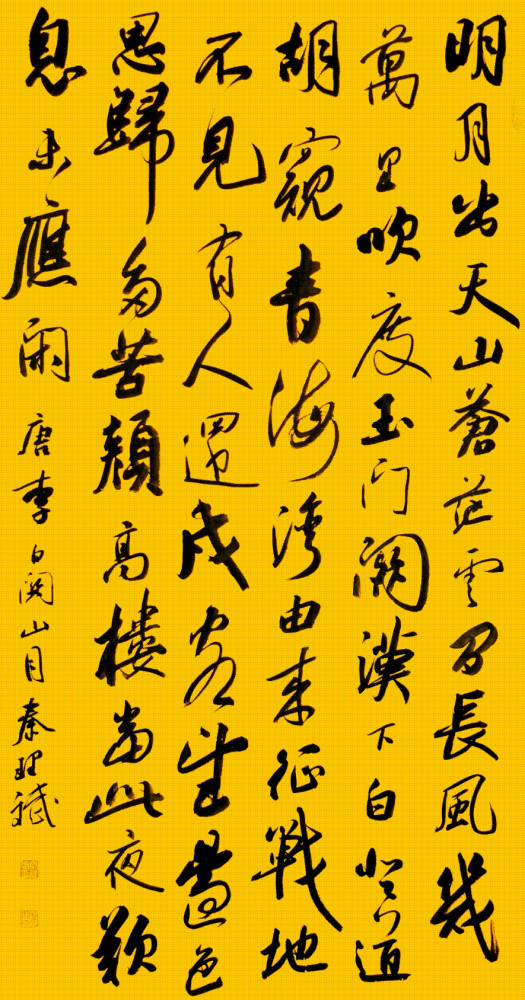 明月出天山蒼茫雲間長風幾
萬里吹度玉門關漢下白登道
胡窺青海灣由來征戰地
不見有人還戍客望邊色
思歸多苦顏高樓當此夜歎
息未應閑唐李白關山月秦理斌